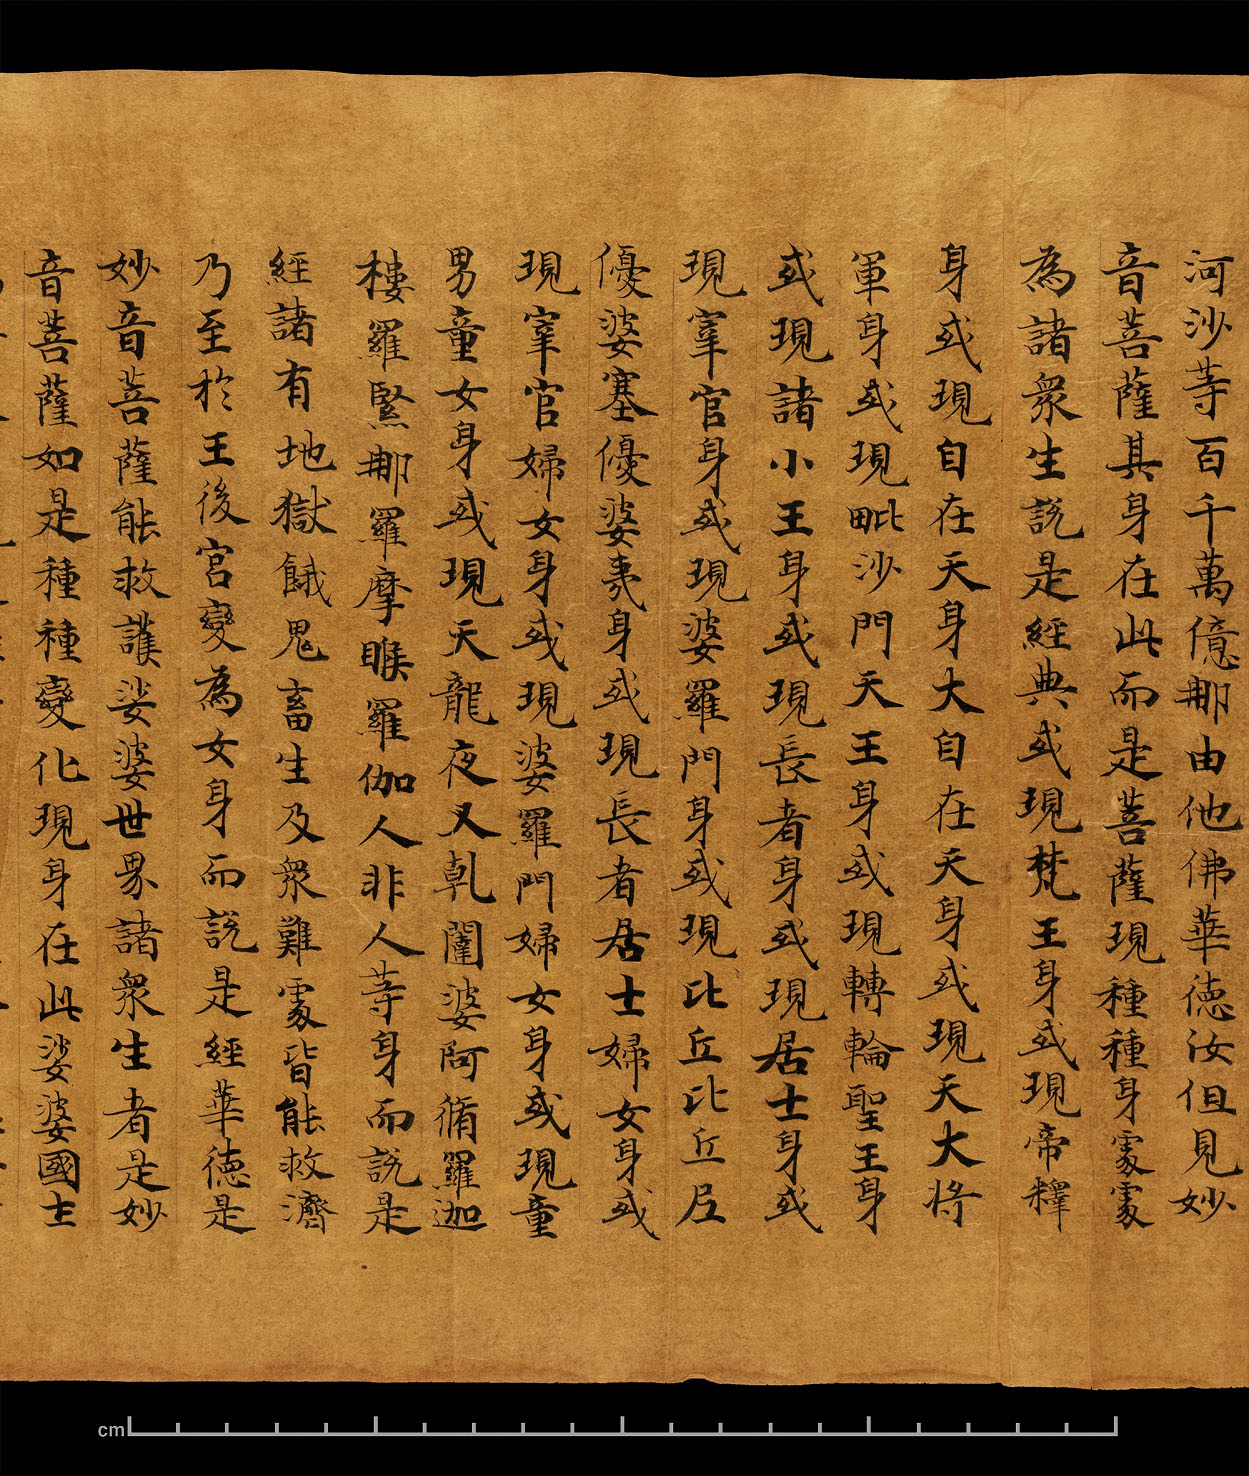 河沙等百千萬億那由他佛華德汝但見妙
音菩薩其身在此而是菩薩現種種身處處
為諸衆生說是經典或現梵王身或現帝釋
身或現自在天身大自在天身或現天大將
軍身或現毗沙門天王身或現轉輪聖王身
或現諸小王身或現長者身或現居士身或
現宰官身或現婆羅門身或現比丘比丘尼
優婆塞優婆夷身或現長者居士婦女身或
現宰官婦女身或現婆羅門婦女身或現童
男童女身或現天龍夜叉乹闥婆阿脩羅迦
樓羅緊那羅摩睺羅伽人非人等身而說是
經諸有地獄餓鬼畜生及衆難處皆能救濟
乃至於王後宮變為女身而說是經華德是
妙音菩薩能救護娑婆世界諸衆生者是妙
音菩薩如是種種變化現身在此娑婆國土
cm